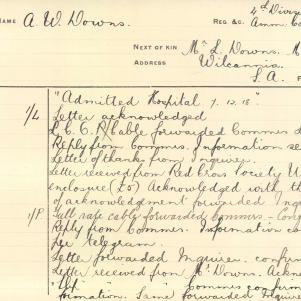 NAME A. W. Downs. REG &c. 4th Divis
Amm. Co
NEXT OF KIN Mr L. Downs. M
ADDRESS Wilcannia
S.A. F
"Admitted Hospital 7.12.18"
1/L Letter acknowledged
L.C.C.R/Cable forwarded Commes d
Reply from Commes. Information se
Letter of thanks from Inquirer.
Letter received from Red Cross Society W
enclosure (£5) Acknowledged with th
of acknowledgment forwarded Inq
1/P Full rate cable forwarded Commes - Cong
Reply from Commes. Information co
per telegram.
Letter forwarded Inquirer. confirm
Letter received from Mr. Downs. Ackn
Commes. confirm
formation. Same forwarded Inquirer